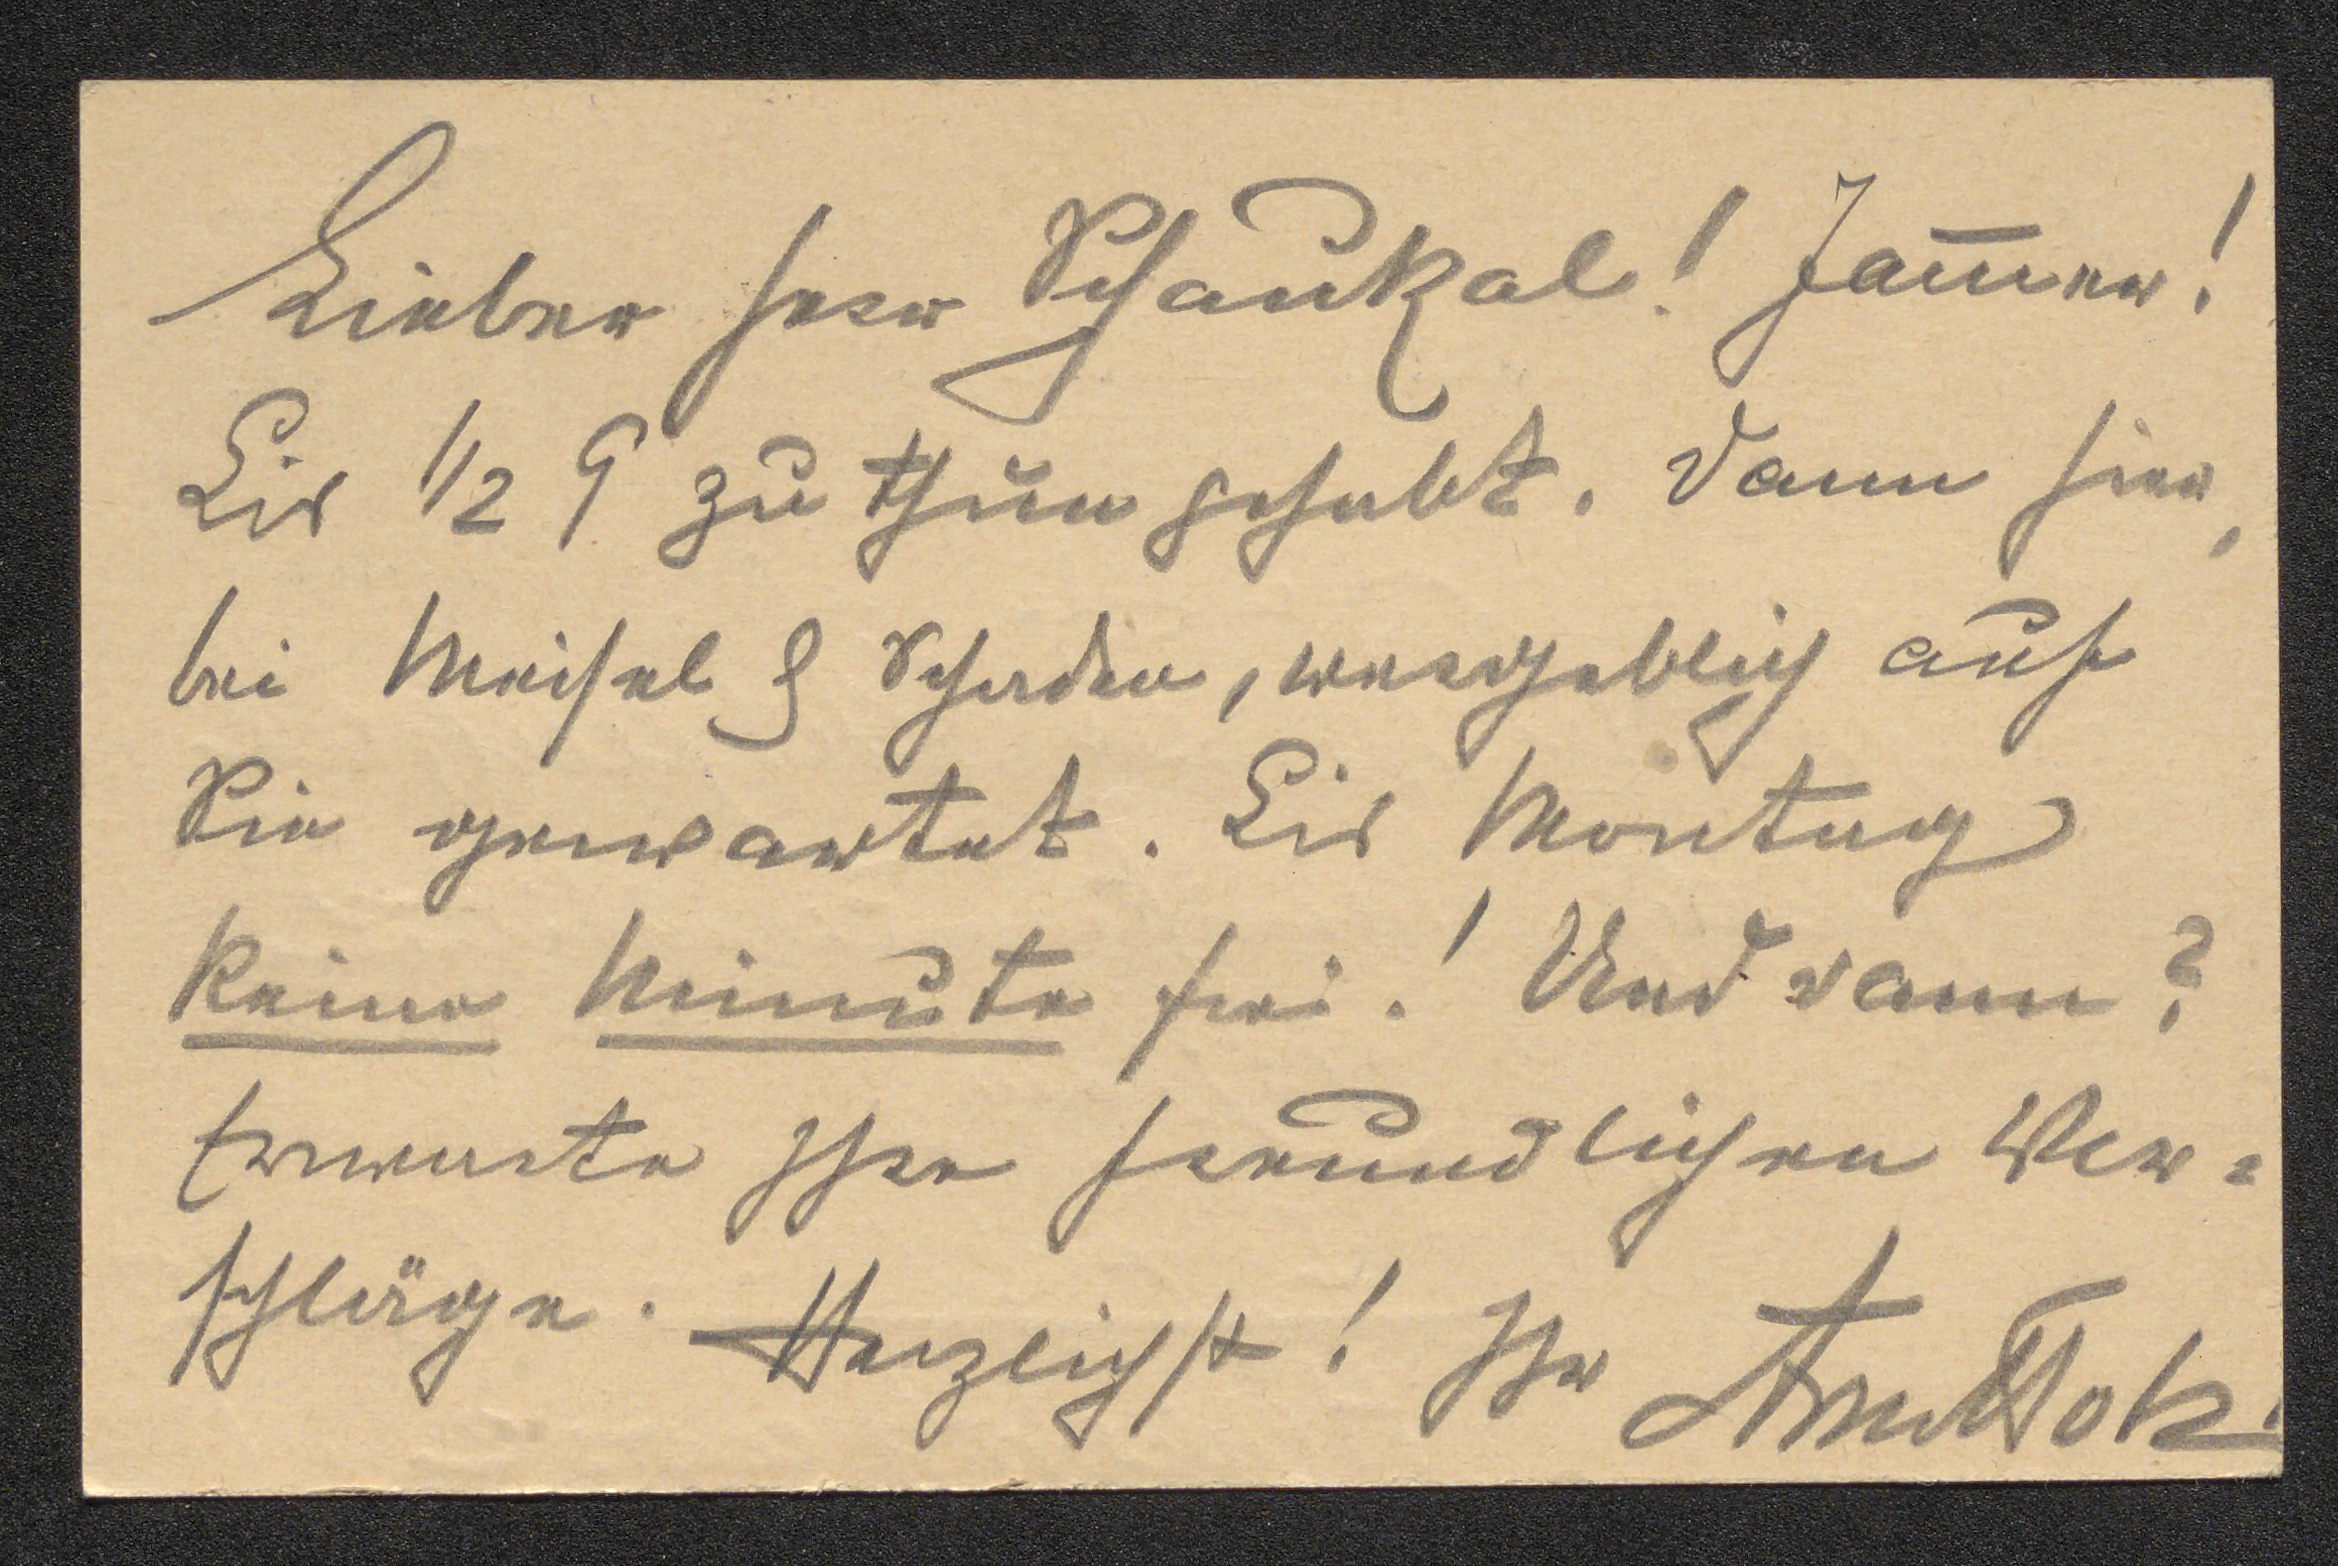 Lieber Herr Schaukal! Jam̄er!
Bis 1/2 9 zu thun gehabt. Dann hier,
bei Meisel & Schaden, vergeblich auf
Sie gewartet. Bis Montag
keine Minute frei! Und dann?
Erwarte Ihre freundlichen Vor=
schläge. Herzlichst! Ihr